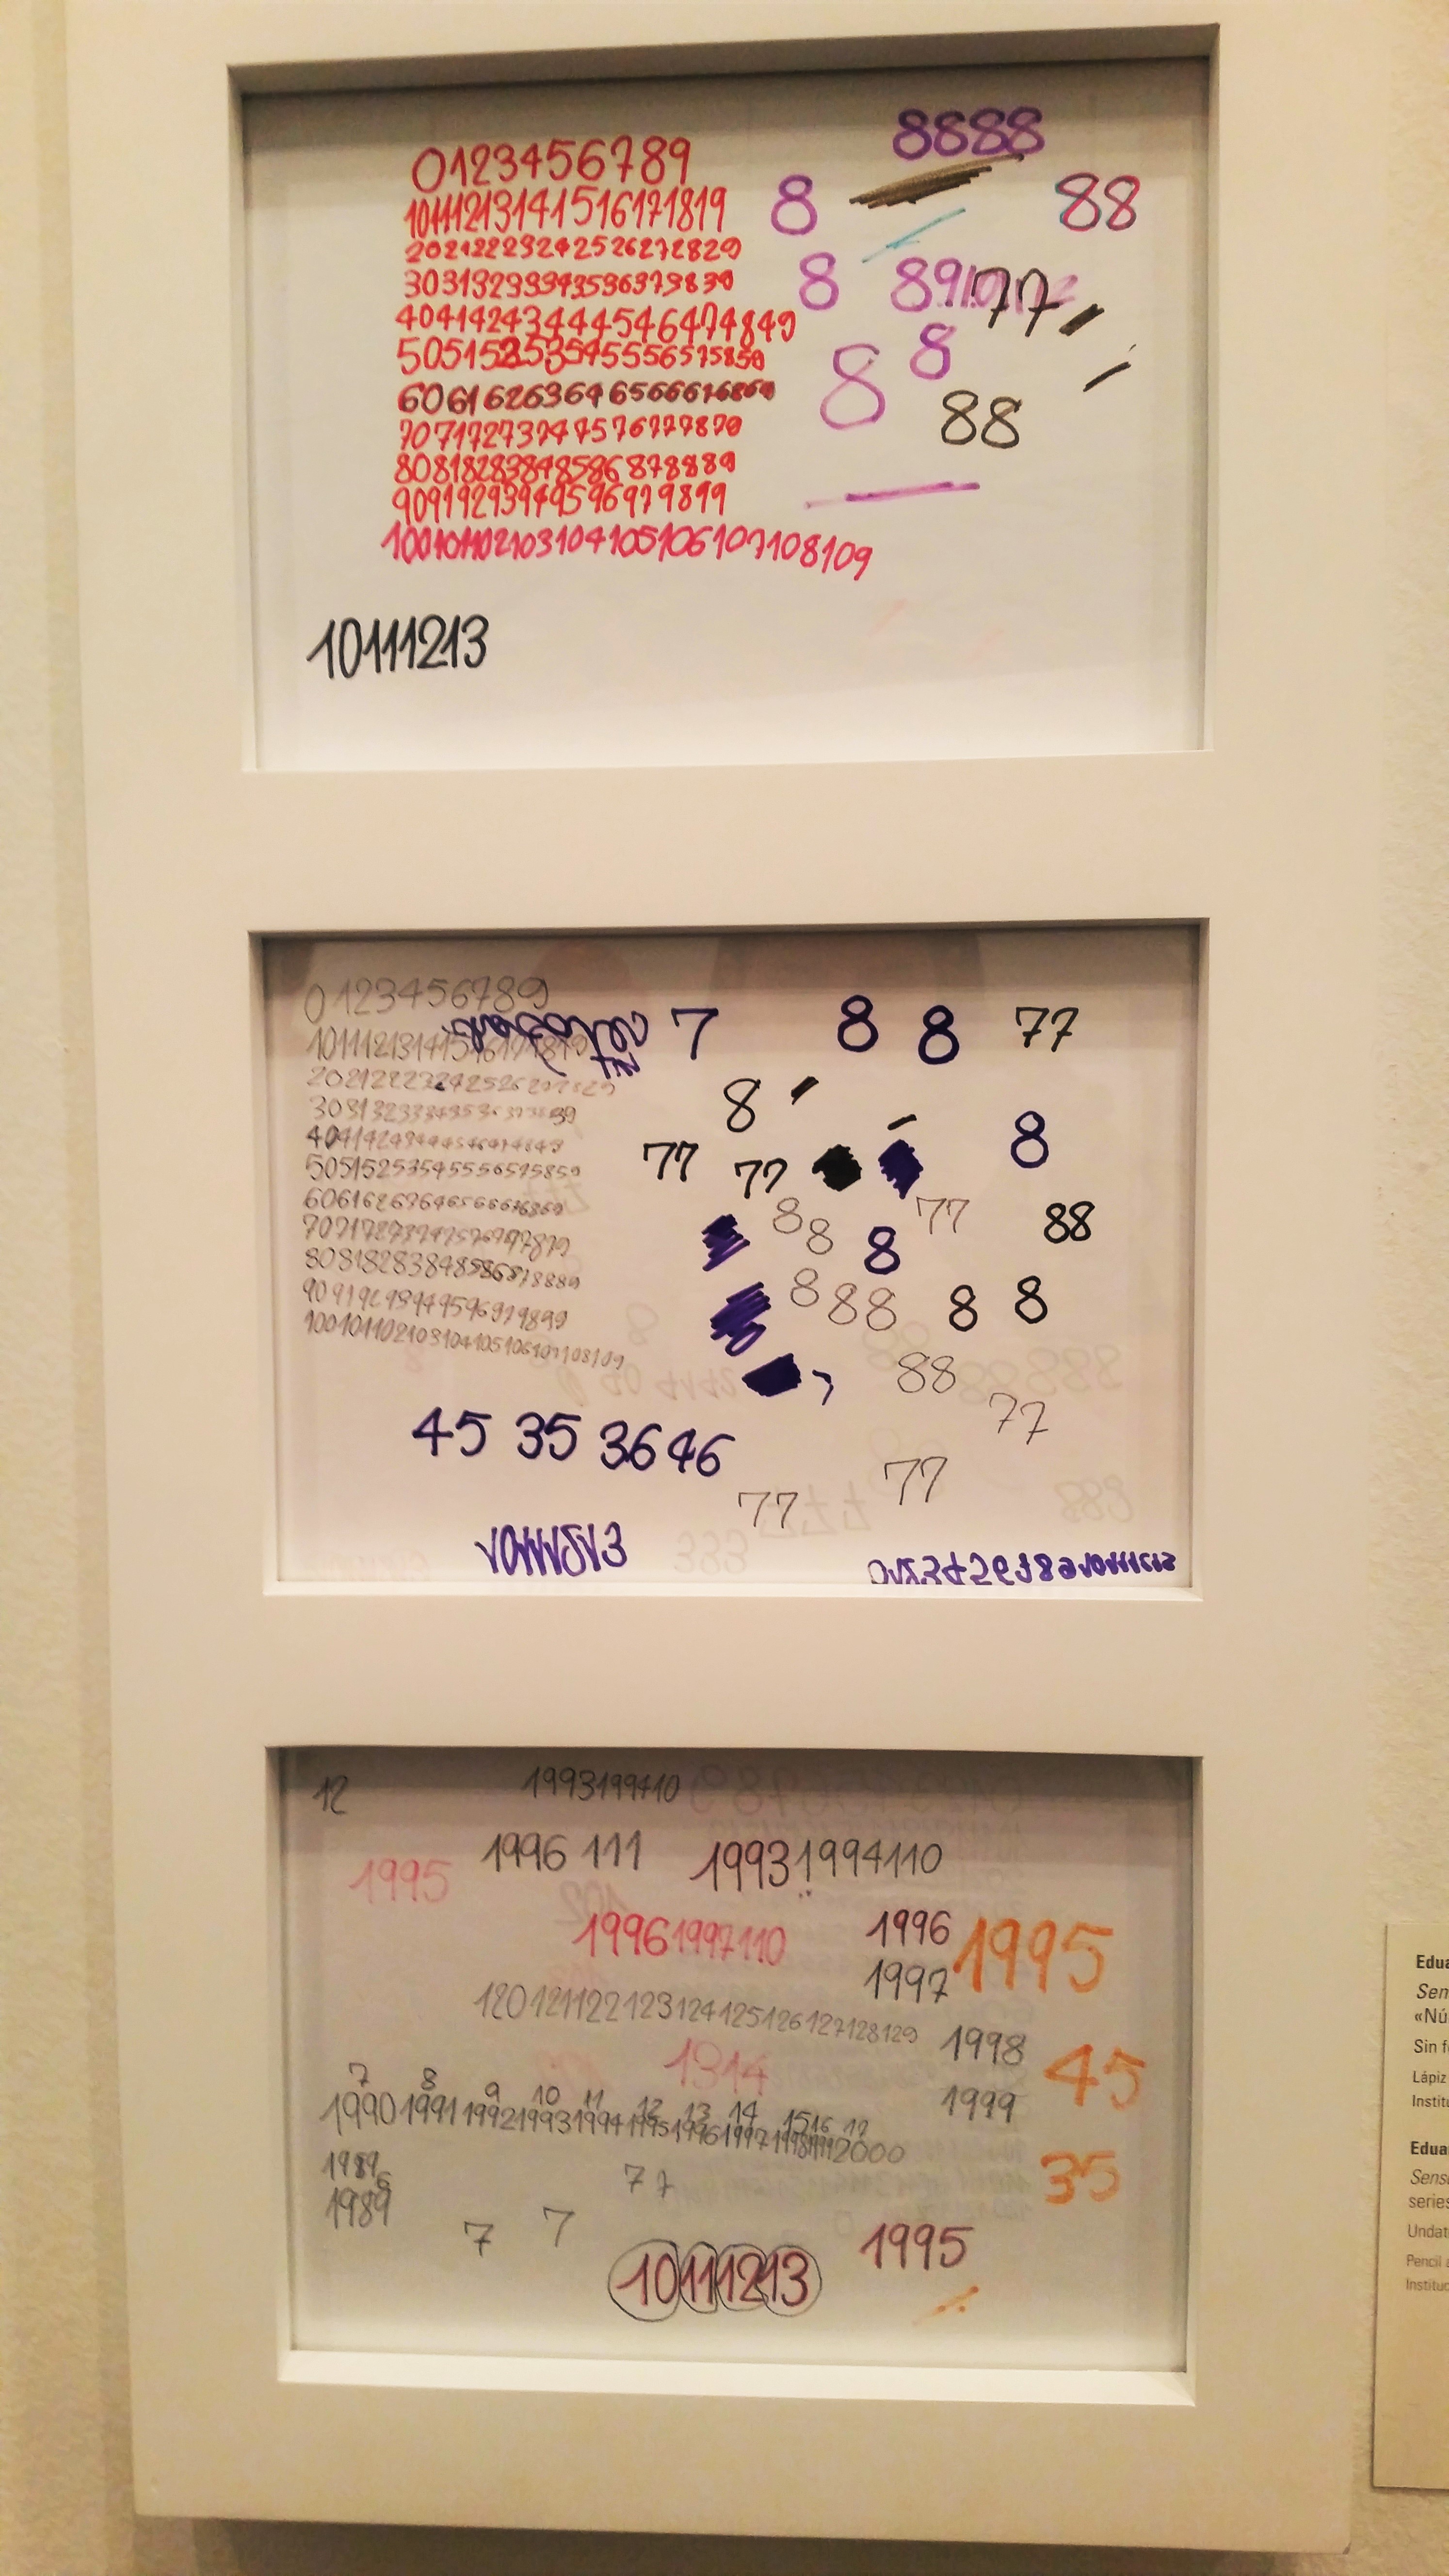 0123456789
8888
10111213141516171819
8
88
20212223242526272829
30313233343536373839
8
8910
77
40414243444546474849
50515253545556575859
8
8
60616263646566676869
88
70717273747576777879
80818283848586878889
90919293949596979899
100101102103104105106107108109
10111213
0123456789
7
8
8
77
10111213141516171819
20212223242526272829
8
30313233343536373839
8
40414243444546474849
77
77
50515253545556575859
60616263646566676869
8
8
77
88
70717273747576777879
8
80818283848586878889
8
88
8
8
90919293949596979899
100101102103104105106107108109
88
77
45 35 36 46
77
77
12
1993199410
1996 111
1993 1994110
1995
19961997110
1996
1995
1997
120121122123124125126127128129
1998
1914
45
7 8 9 10 11 12 13 14 15 16 17
1999
19901991199219931994199519961997199819992000
1989
6
77
35
1989
7
7
1995
10111213
Edua
Sen
«Nú
Sin f
Lápiz
Institu
Edua
Sens
series
Undat
Pencil
Instituc